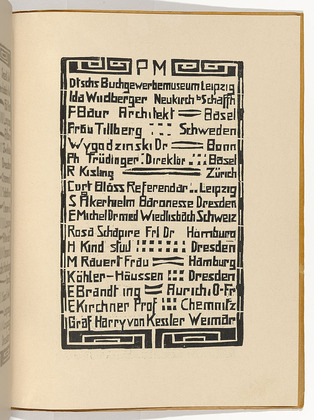 PM
Dtschs Buchgewerbemuseum Leipzig
Ida Wildberger Neukirch b Schaffh
F Baur Architekt Basel
Frau Tillberg Schweden
Wygodzinski Dr Bonn
Ph Trüdinger Direktor Basel
R Kisling Zürich
Curt Blöss Referendar Leipzig
S Åkerhielm Baronesse Dresden
E Michel Dr med Wiedlisbach Schweiz
Rosa Schapire Frl Dr Hamburg
H Kind stud Dresden
M Rauert Frau Hamburg
Köhler-Haussen Dresden
E Brandt ing Aurich O-Fr
E Kirchner Prof Chemnitz
Graf Harry von Kessler Weimar